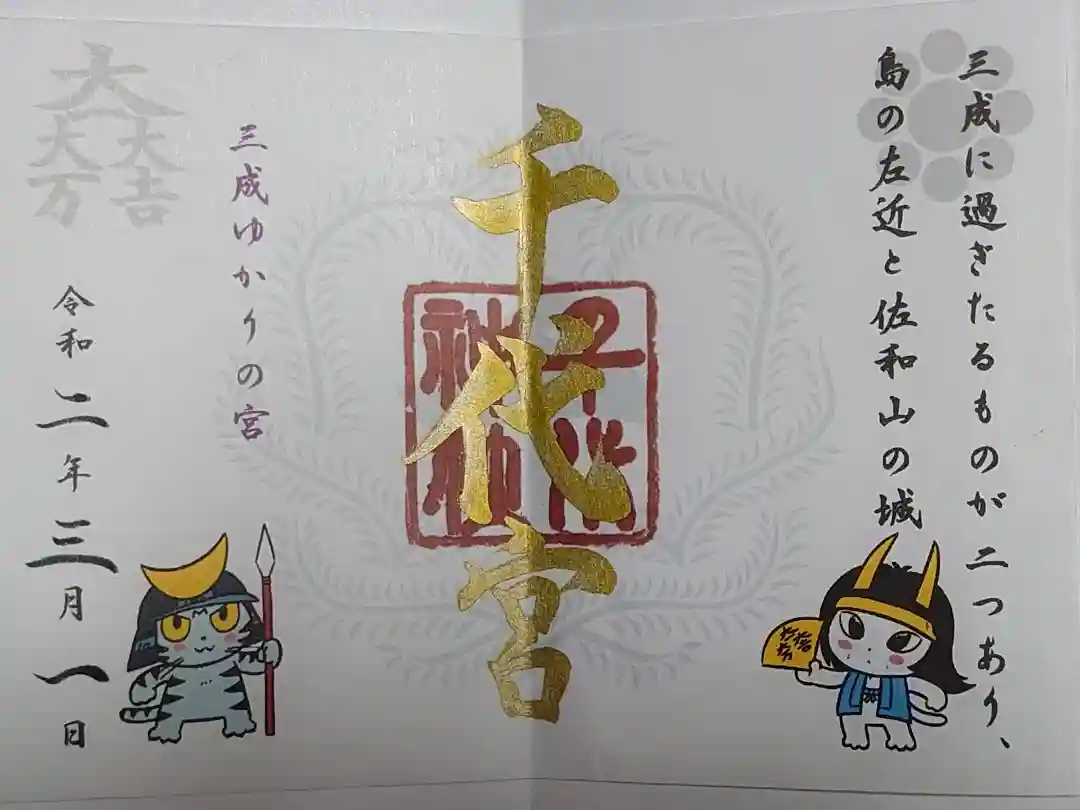 三成に過ぎたるものが二つあり、
島の左近と佐和山の城
千代宮
千代
神社
三成ゆかりの宮
大一
大万
大吉
令和二年三月一日